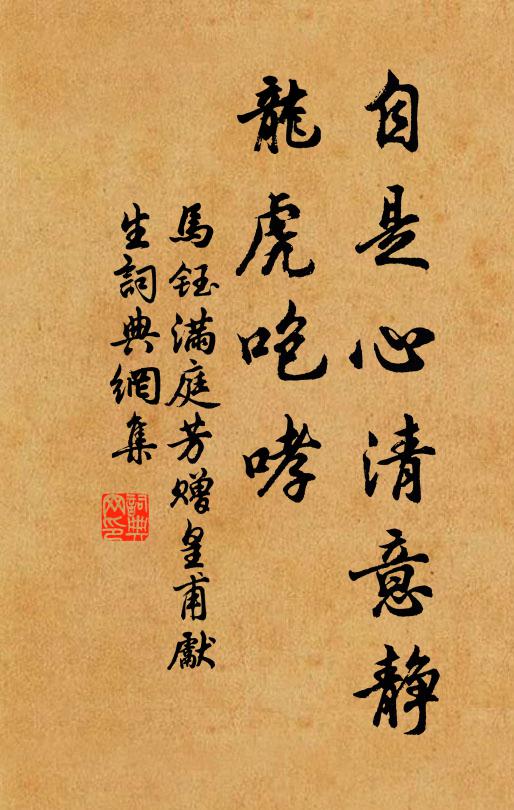 自是心清意静
龍虎咆哮
馬鈺滿庭芳贈皇甫獻
生詞典網集
詞典
网印